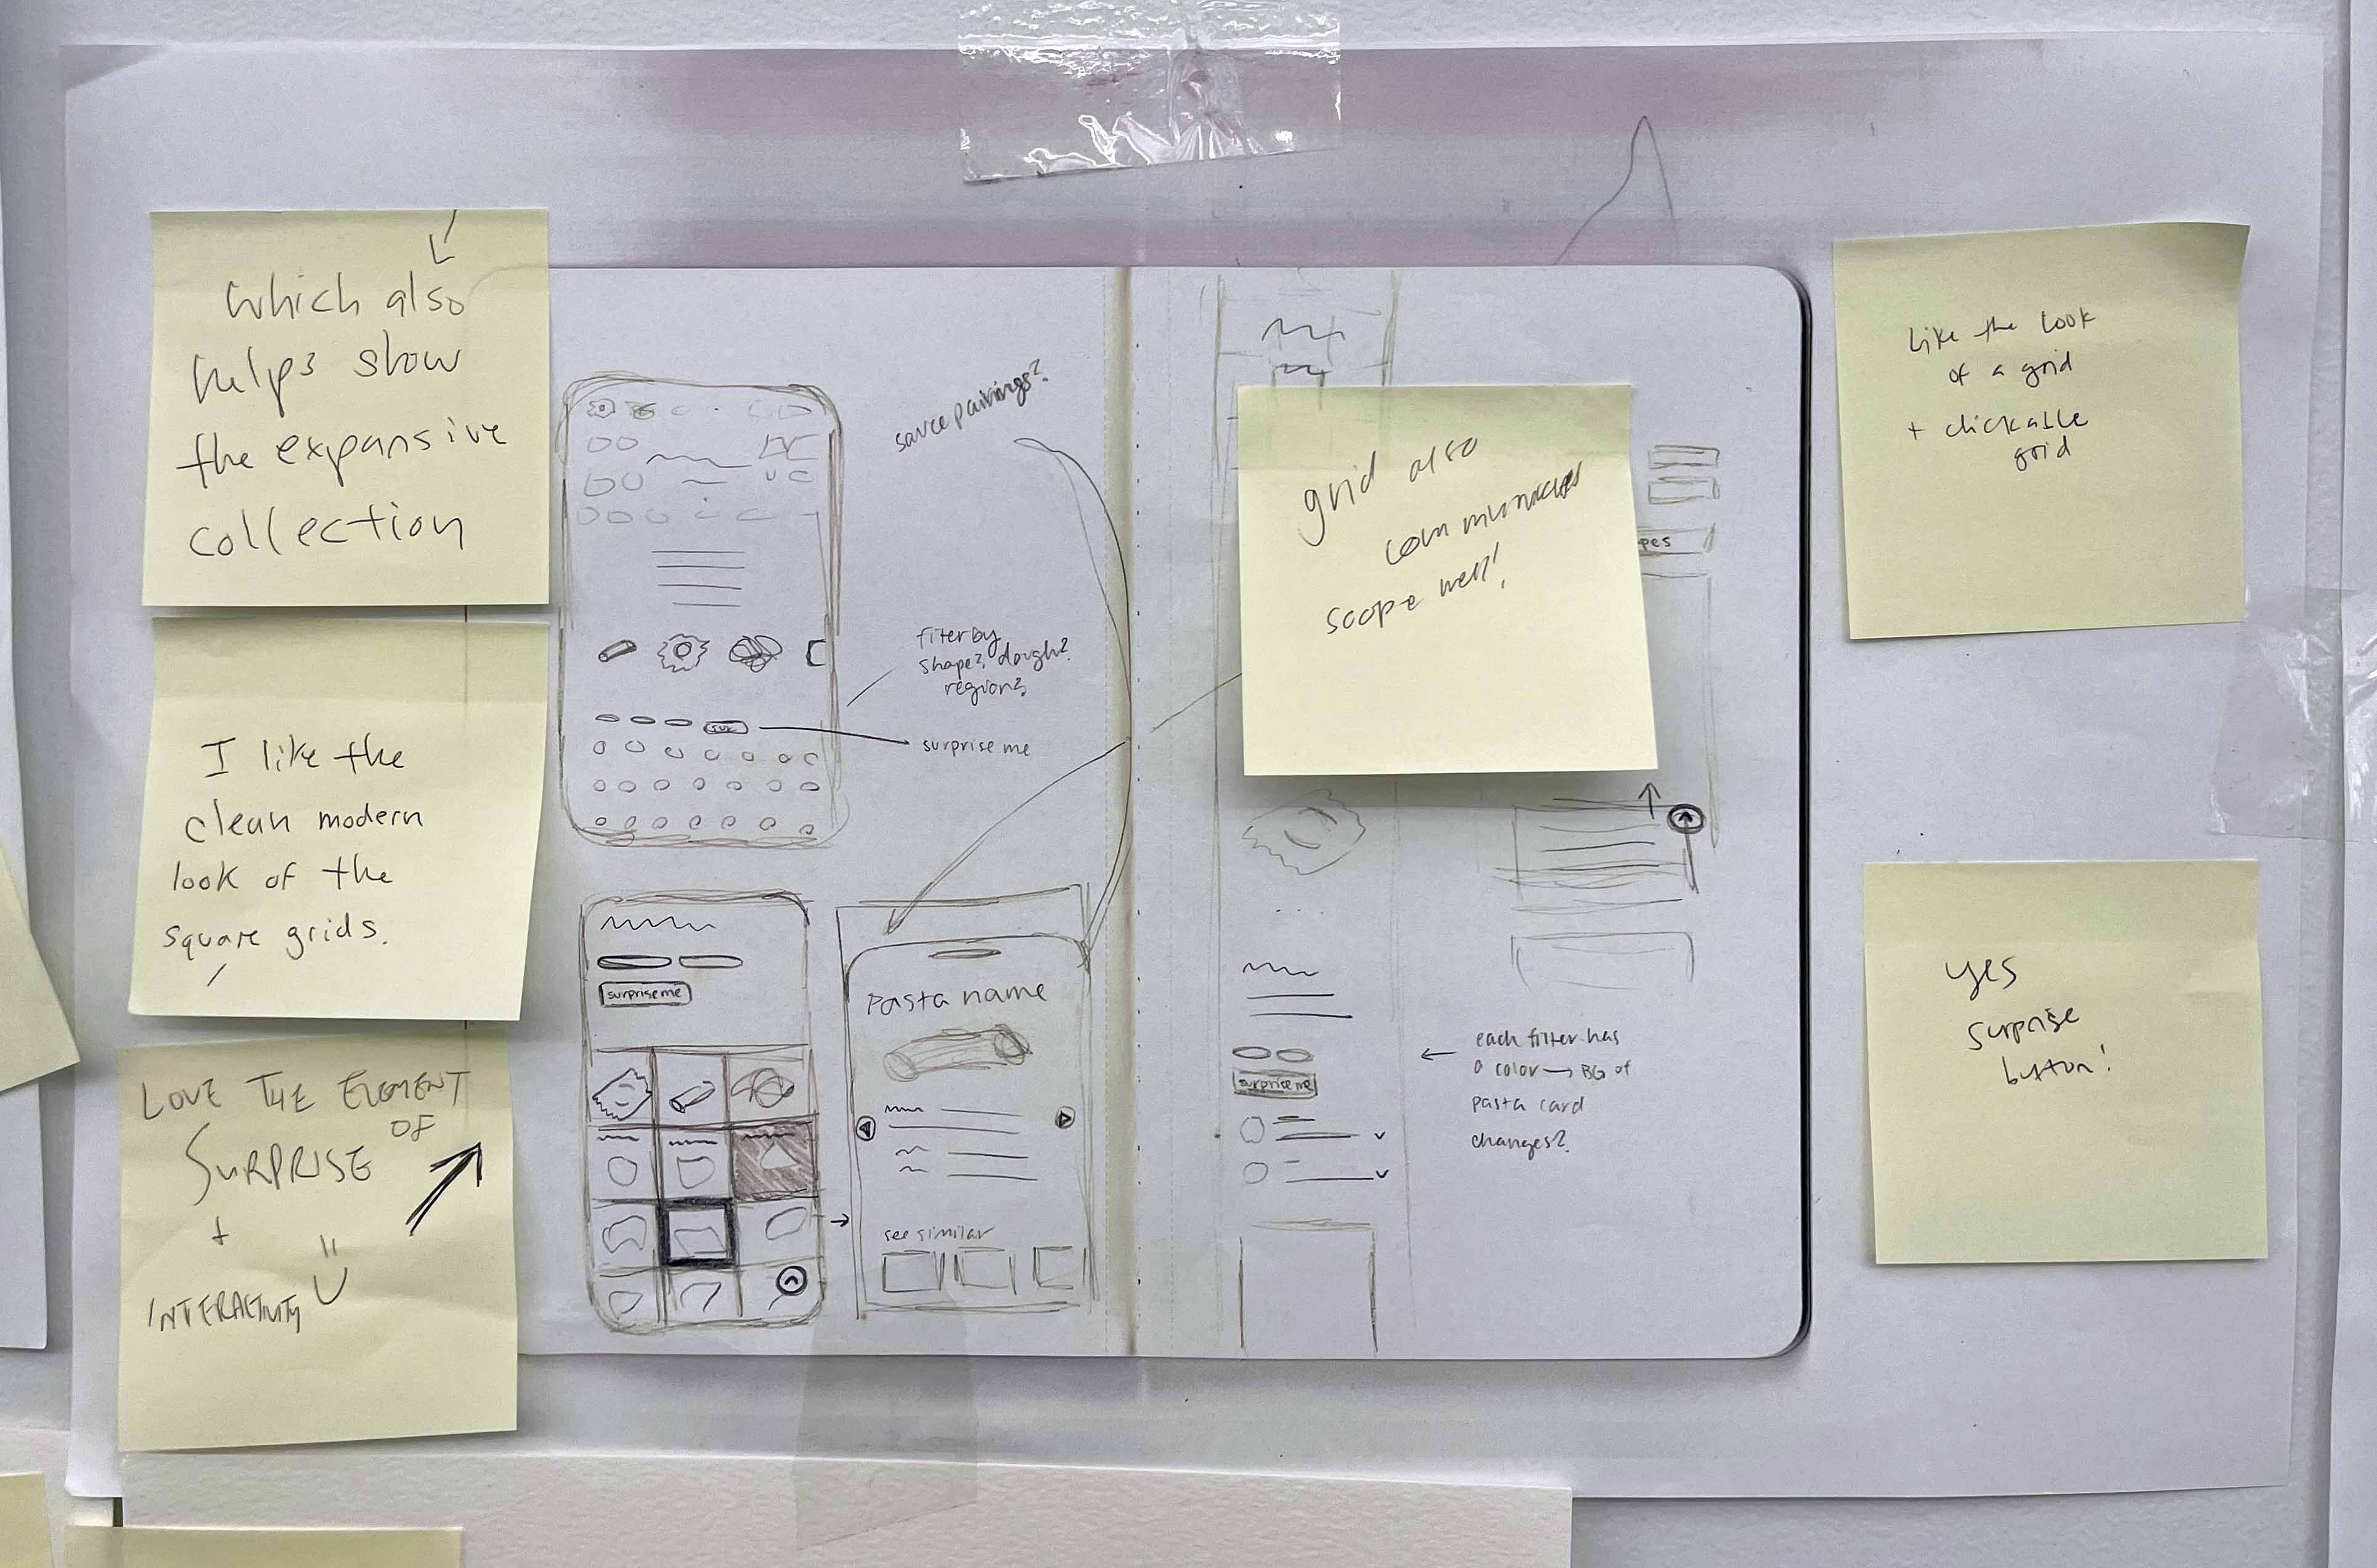 which also
helps show
the expansive
collection
I like the
clean modern
look of the
square grids.
LOVE THE ELEMENT
OF
SURPRISE
+
INTERACTIVITY
sauce pairings?
filter by
shape? dough?
region?
sur.
surprise me
surprise me
Pasta name
see similar
grid also
communicates
scope well!
pes
surprise me
each filter has
a color → BG of
pasta card
changes?
like the look
of a grid
+ clickable
grid
yes
surprise
button!